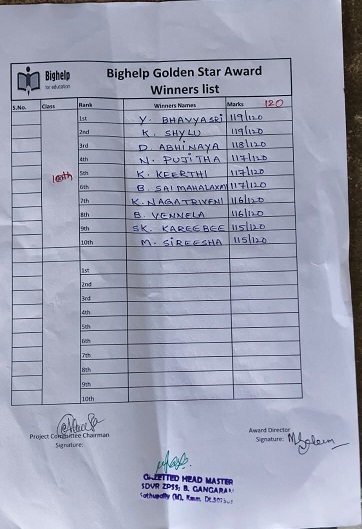 Bighelp
for education
Bighelp Golden Star Award
Winners list
S.No. Class Rank Winners Names Marks 120
10th
1st Y. BHAVYASRI 119/120
2nd K. SHYLU 119/120
3rd D. ABHINAYA 118/120
4th N. PUJITHA 117/120
5th K. KEERTHI 117/120
6th B. SAI MAHALAXMI 117/120
7th K. NAGATRIVENI 116/120
8th B. VENNELA 116/120
9th SK. KAREEBEE 115/120
10th M. SIREESHA 115/120
1st
2nd
3rd
4th
5th
6th
7th
8th
9th
10th
Project Committee Chairman
Signature:
Award Director
Signature:
GAZETTED HEAD MASTER
SDVR ZPSS, B. GANGARAM
Sathupally (M), Kmm. Dt.